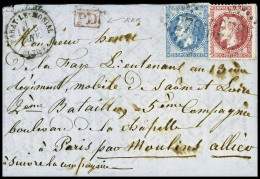 PARAY-LE-MONIAL
P.D.
Monsieur Henri
de la Faye Lieutenant au
Régiment, mobile de Saône et Loire
2ème Bataillon, 5ème Compagnie
boulevard de la Chapelle
à Paris par Moulins allier
à suivre la compagnie